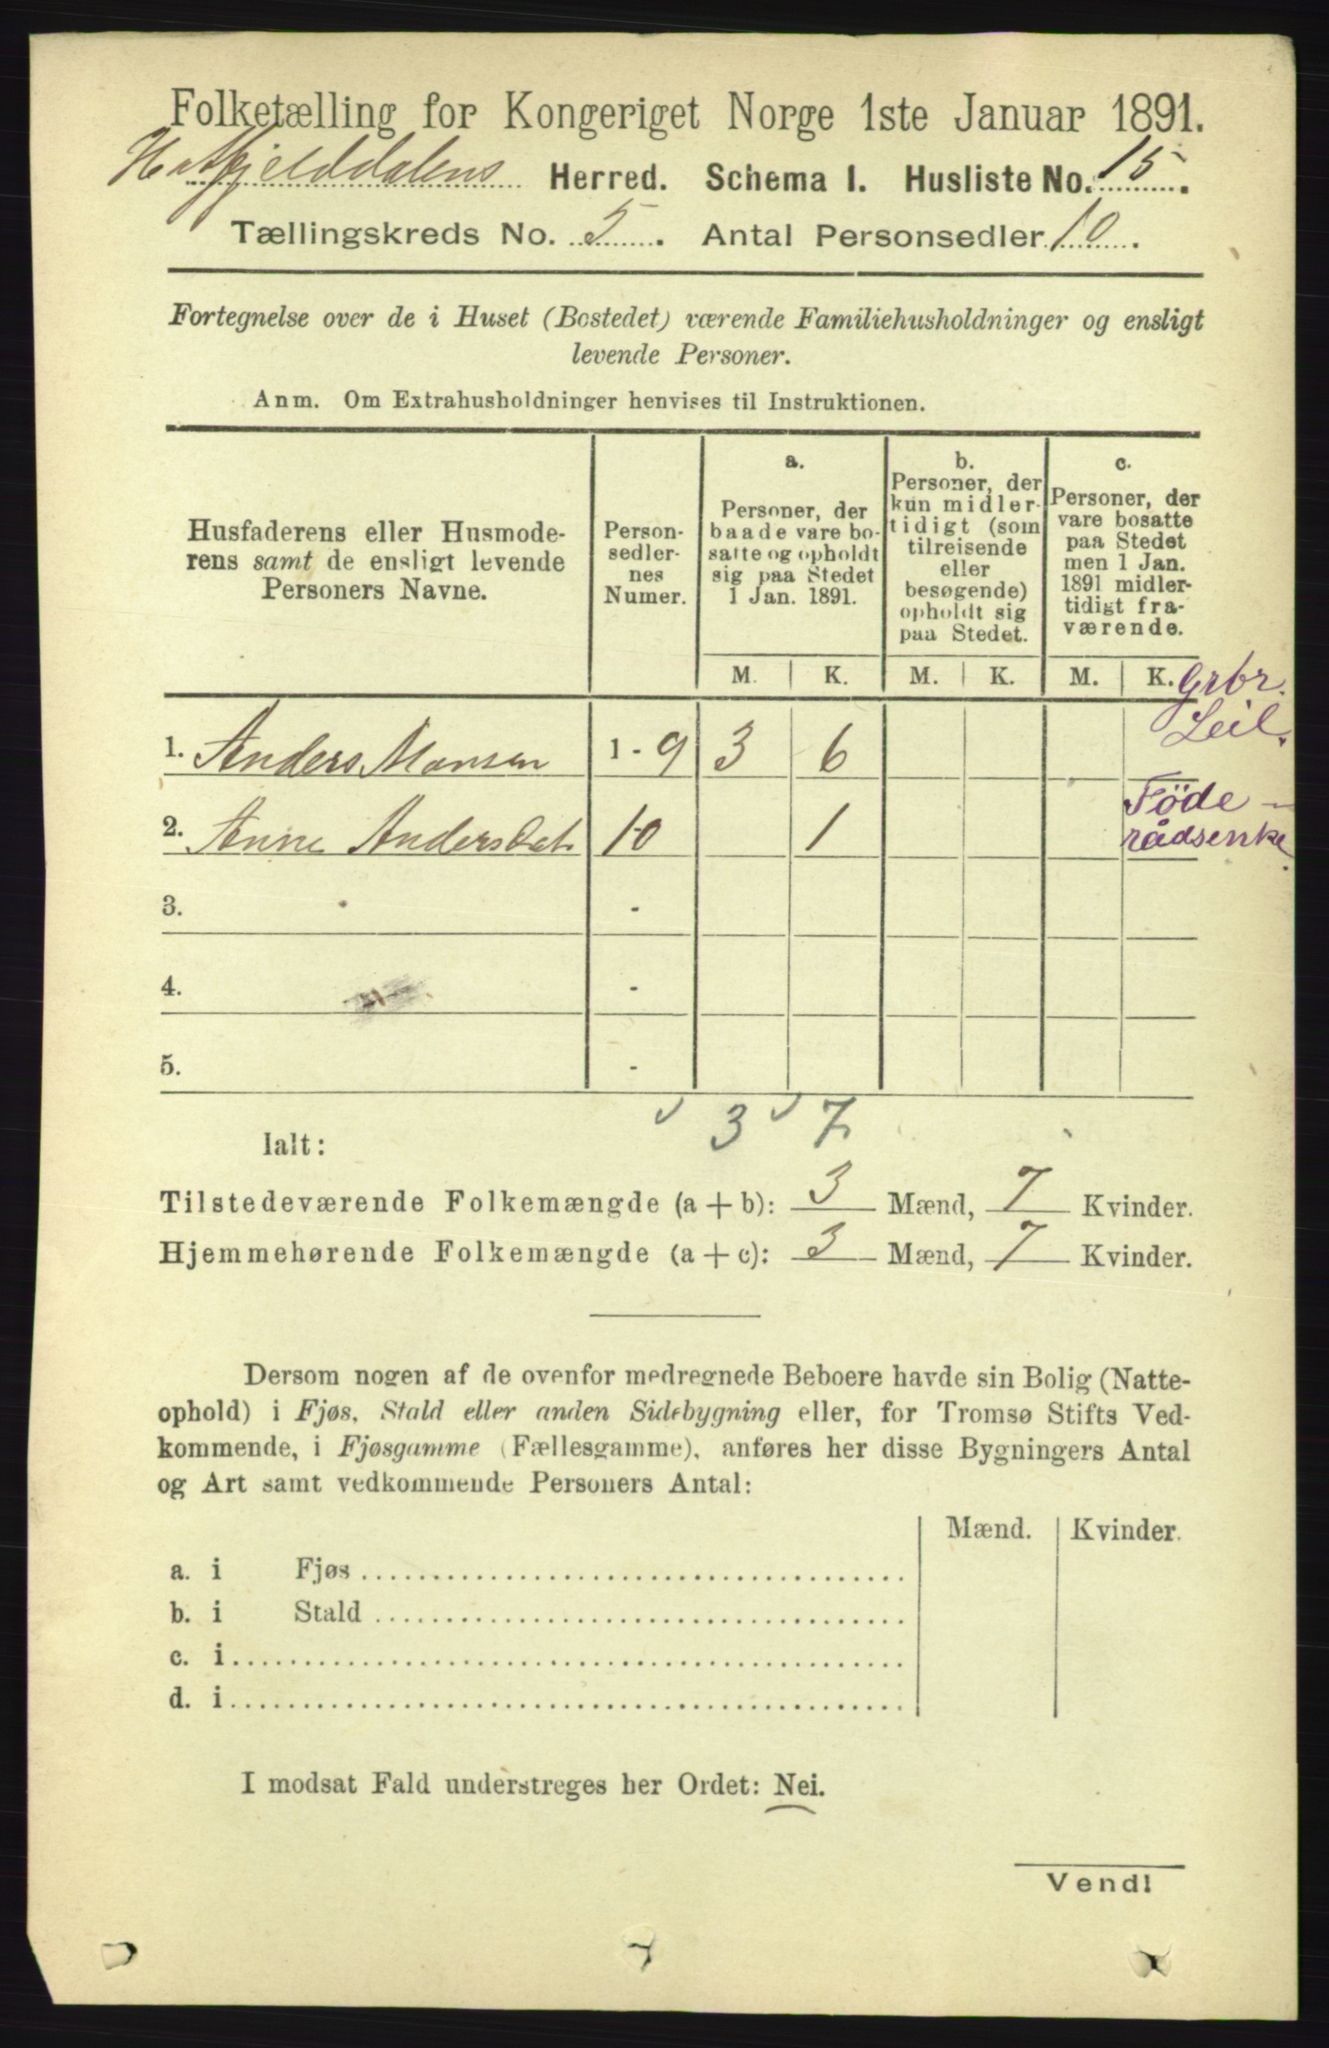 Folketælling for Kongeriget Norge 1ste Januar 1891.
Hatfjelddalens Herred. Schema I. Husliste No. 15.
Tællingskreds No. 5. Antal Personsedler 10.
Fortegnelse over de i Huset (Bostedet) værende Familiehusholdninger og ensligt
levende Personer.
Anm. Om Extrahusholdninger henvises til Instruktionen.
Husfaderens eller Husmode-
rens samt de ensligt levende
Personers Navne.
Person-
sedler-
nes
Numer.
a.
Personer, der
baade vare bo-
satte og opholdt
sig paa Stedet
1 Jan. 1891.
b.
Personer, der
kun midler-
tidigt (som
tilreisende
eller
besøgende)
opholdt sig
paa Stedet.
c.
Personer, der
vare bosatte
paa Stedet
men 1 Jan.
1891 midler-
tidigt fra-
værende.
M. K. M. K. M. K.
Grbr.
Leil.
1. Anders Monsen 1-9 3 6
2. Anne Andersdat. 10 1
Föde-
rådsenke.
3. -
4. -
5. -
3 7
Ialt:
Tilstedeværende Folkemængde (a + b): 3 Mænd, 7 Kvinder.
Hjemmehørende Folkemængde (a + c): 3 Mænd, 7 Kvinder.
Dersom nogen af de ovenfor medregnede Beboere havde sin Bolig (Natte-
ophold) i Fjøs, Stald eller anden Sidebygning eller, for Tromsø Stifts Ved-
kommende, i Fjøsgamme (Fællesgamme), anføres her disse Bygningers Antal
og Art samt vedkommende Personers Antal:
Mænd. Kvinder.
a. i Fjøs
b. i Stald
c. i
d. i
I modsat Fald understreges her Ordet: Nei.
Vend!